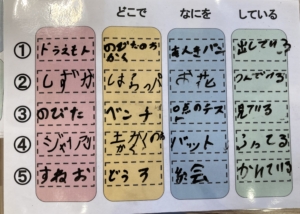 どこで なにを している
① ドラえもん のびたのがっく あんきパン 出している
② しずか はらっぱ お花 つんでいる
③ のびた ベンチ 0点のテスト 見ている
④ ジャイアン 土かん バット ふってる
⑤ すねお どうろ 絵 かいている